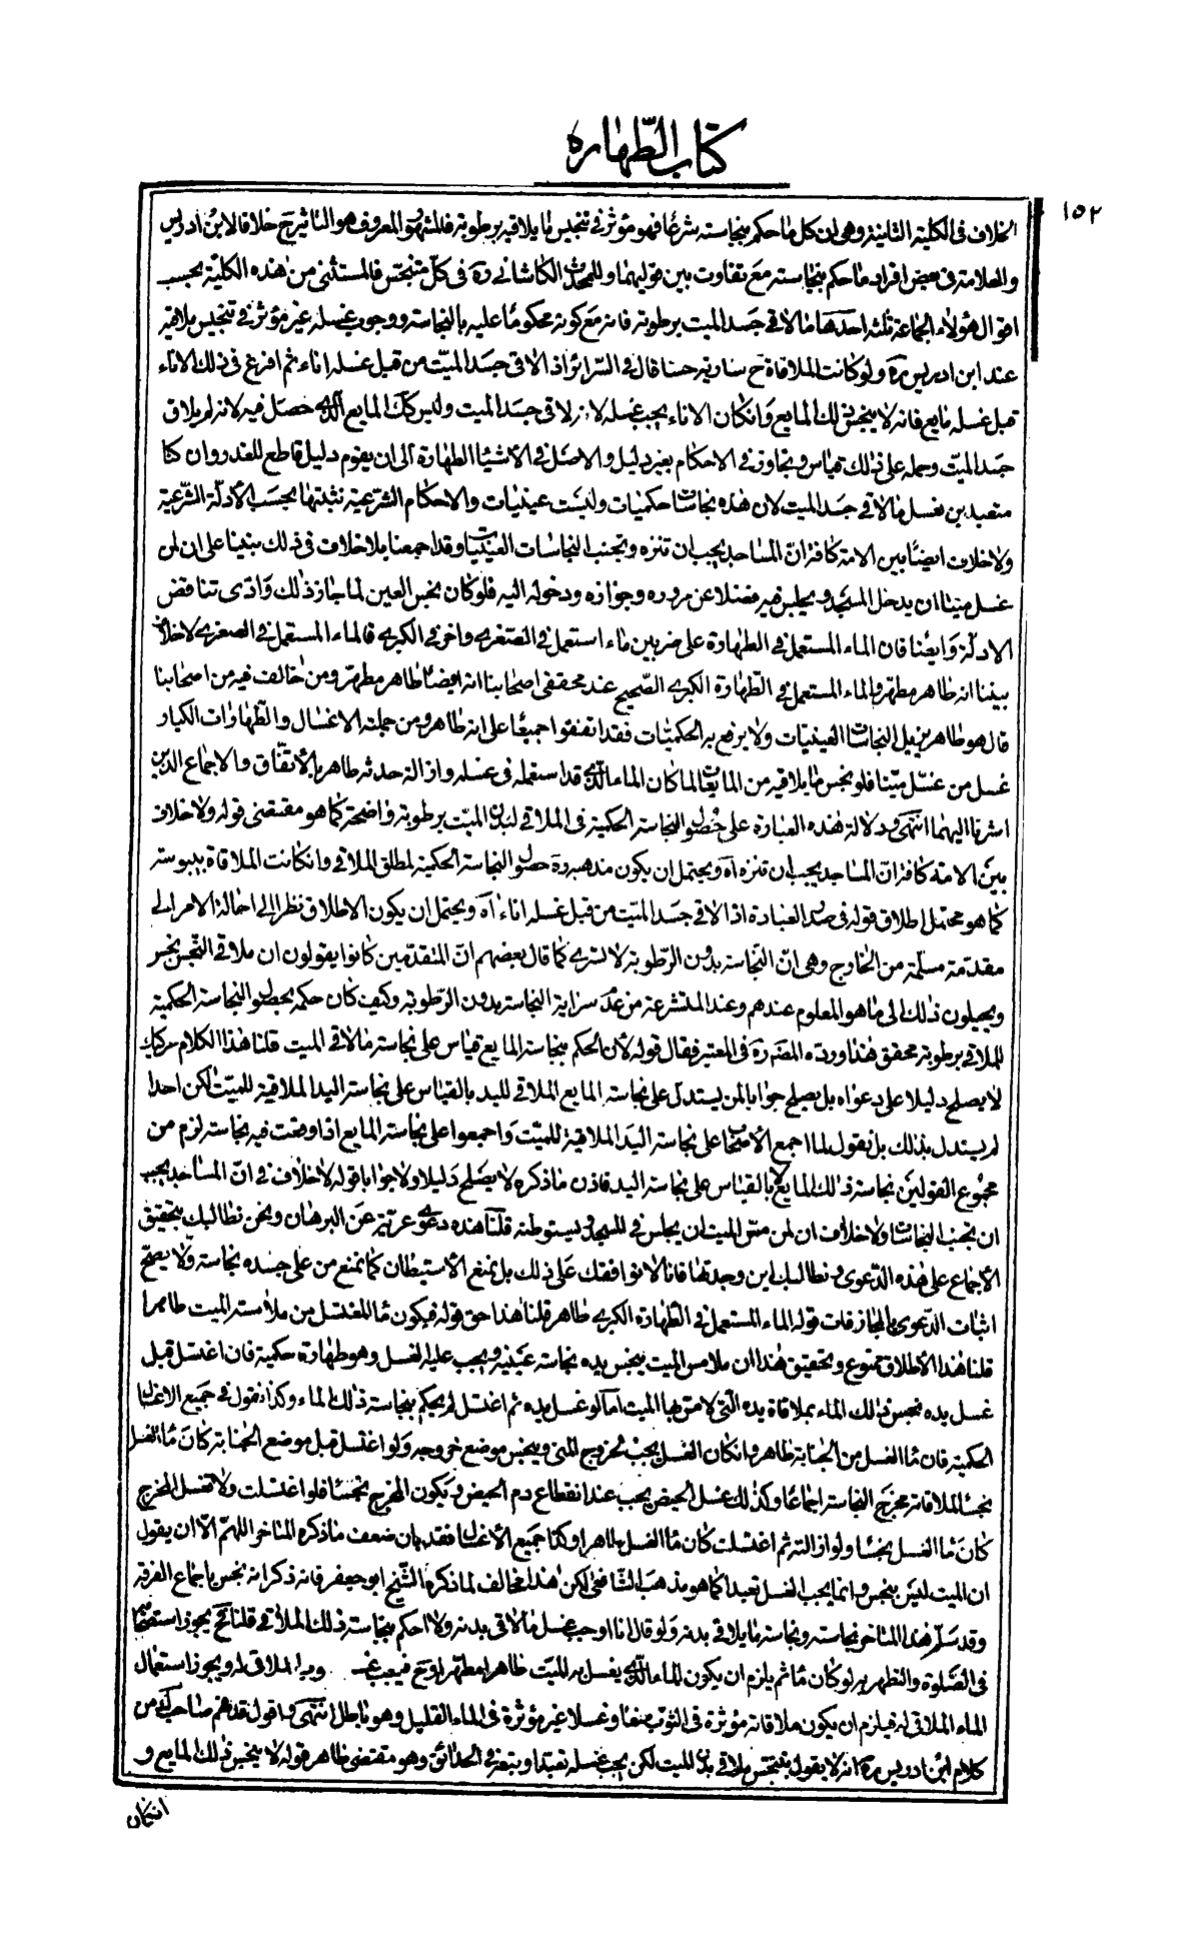 كتاب الطّهارة
١٥٢
الخلاف فى الكلية الثانية وهى ان كل ما حكم بنجاسته شرعًا فهو مؤثر فى تنجيس ما يلاقيه برطوبة فالمشهور المعروف هو التاثير ح خلافا لابن ادريس
والعلامة فى بعض افراد ما حكم بنجاسته مع تفاوت بين قوليهما وللمحدث الكاشانى ره فى كل متنجس فالمستثنى من هذه الكليّة بحسب
اقوال هؤلاء الجماعة ثلثة احدها ما لاقى جسد الميت برطوبة فانه مع كونه محكومًا عليه بالنجاسة ووجوب غسله غير مؤثر فى تنجيس ملاقيه
عند ابن ادريس ره ولو كانت الملاقاة ح سارية حسا قال فى السّرائر اذا لاقى جسد الميّت من قبل غسله اناء ثم افرغ فى ذلك الاناء
قبل غسله مايع فانه لا ينجس ذلك المايع وان كان الاناء يجب غسله لانه لاقى جسد الميت وليس كك المايع الذى حصل فيه لانه لم يلاق
جسد الميّت وحمله على ذلك قياس وتجاوز فى الاحكام بغير دليل والاصل فى الأشياء الطهارة الى ان يقوم دليل قاطع للعذر وان كنا
متعبدين بغسل ما لاقى جسد الميت لان هذه نجاسات حكميات وليست عينيات والاحكام الشرعية نثبتها بحسب الأدلّة الشّرعية
ولا خلاف ايضًا بين الامة كافة انّ المساجد يجب ان تنزه وتجنب النجاسات العينيّات وقد اجمعنا بلا خلاف فى ذلك بيننا على ان لمن
غسل ميتا ان يدخل المسجد ويجلس فيه فضلا عن مروره وجوازه ودخوله اليه فلو كان نجس العين لما جاز ذلك وادّى تناقض
الادلّة وايضًا فان الماء المستعمل فى الطهارة على ضربين ماء استعمل فى الصّغرى واخر فى الكبرى فالماء المستعمل فى الصغرى لا خلاف
بيننا انه طاهر مطهّر والماء المستعمل فى الطّهارة الكبرى الصّحيح عند محققى اصحابنا انه ايضًا طاهر مطهّر ومن خالف فيه من اصحابنا
قال هو طاهر يزيل النجاسات العينيات ولا يرفع به الحكميّات فقد اتفقوا جميعًا على انه طاهر ومن جملة الاغسال والطّهارات الكبار
غسل من غسّل ميّتا فلو نجس ما يلاقيه من المايعات لما كان الماء الذى قد استعمله فى غسله وازالة حدثه طاهرا بالأتفاق والاجماع الذين
اشرنا اليهما انتهى ودلالة هذه العبارة على حُصول النجاسة الحكمية فى الملاقى لبدن الميّت برطوبة واضحة كما هو مقتضى قوله ولا خلاف
بين الامة كافة انّ المساجد يجب ان تنزه اه ويحتمل ان يكون مذهبه ره حصول النجاسة الحكمية لمطلق الملاقى وان كانت الملاقاة بيبوسة
كما هو محتمل اطلاق قوله فى صدر العبارة اذا لاقى جسد الميّت من قبل غسله اناء اه ويحتمل ان يكون الاطلاق نظرا الى احالة الأمر الى
مقدّمة مسلّمة من الخارج وهى انّ النّجاسة بدون الرّطوبة لا تسرى كما قال بعضهم انّ المتقدّمين كانوا يقولون ان ملاقى النّجس نجس
ويحيلون ذلك الى ما هو المعلوم عندهم وعند المتشرعة من عدم سراية النجاسة بدون الرّطوبة وكيف كان حكمه بحصول النجاسة الحكمية
للملاقى برطوبة محقق هذا وردّه المصنف ره فى المعتبر فقال قوله لأن الحكم بنجاسة المايع قياس على نجاسة ما لاقى الميت قلنا هذا الكلام ركيك
لا يصلح دليلا على دعواه بل يصلح جوابا لمن يستدل على نجاسة المايع الملاقى لليد بالقياس على نجاسة اليد الملاقية للميّت لكن احدا
لم يستدل بذلك بل نقول لما اجمع الأصحاب على نجاسة اليد الملاقية للميّت واجمعوا على نجاسة المايع اذا وقعت فيه نجاسة لزم من
مجموع القولين نجاسة ذلك المايع لا بالقياس على نجاسة اليد فاذن ما ذكره لا يصلح دليلا ولا جوابا قوله لا خلاف فى انّ المساجد يجب
ان تجنب النجاسات ولا خلاف ان لمن مسّ الميت ان يجلس فى المسجد ويستوطنه قلنا هذه دعوى عرية عن البرهان ونحن نطالبك بتحقيق
الأجماع على هذه الدّعوى ونطالبك اين وجدتها فانا لا نوافقك على ذلك بل نمنع الأستيطان كما نمنع من على جسده نجاسة ولا يصحّ
اثبات الدّعوى بالمجازفات قوله الماء المستعمل فى الطّهارة الكبرى طاهر قلنا هذا حق قوله فيكون ماء المغتسل من ملامسة الميت طاهرا
قلنا هذا الأطلاق ممنوع وتحقيق هذا ان ملامس الميت ينجس يده نجاسة عينية ويجب عليه الغسل وهو طهارة حكمية فان اغتسل قبل
غسل يده نجس ذلك الماء بملاقاة يده الّتى لامس بها الميت اما لو غسل يده ثم اغتسل لم يحكم بنجاسة ذلك الماء وكذا نقول فى جميع الاغسال
الحكمية فان ماء الغسل من الجنابة طاهر وان كان الغسل يجب لخروج المنى وينجس موضع خروجه ولو اغتسل قبل موضع الجنابة كان ماء الغسل
نجسًا لملاقاته مخرج النجاسة اجماعًا وكذلك غسل الحيض يجب عند انقطاع دم الحيض ويكون المخرج نجسًا فلو اغتسلت ولم تغسل المخرج
كان ماء الغسل نجسًا ولو ازالته ثم اغتسلت كان ماء الغسل طاهرا وكذا جميع الأغسال فقد بان ضعف ما ذكره المتاخر اللهمّ الّا ان يقول
ان الميت ليس بنجس وانما يجب الغسل تعبدا كما هو مذهب الشافعى لكن هذا مخالف لما ذكره الشّيخ ابو جعفر فانه ذكر انه نجس باجماع الفرقة
وقد سلّم هذا المتاخر نجاسته ونجاسة ما يلاقى بدنه ولو قال انا اوجب غسل ما لاقى بدنه ولا احكم بنجاسة ذلك الملاقى قلنا فح يجوز استصحابه
فى الصّلوة والتطهر به لو كان ماء ثم يلزم ان يكون الماء الذى يغسل به الميّت طاهرا مطهّرا وح فيجب غسـ ويد الملاقى له ويجوز استعمال
الماء الملاقى له فيلزم ان يكون ملاقاته مؤثرة فى الثوب منعا وغسلا غير مؤثرة فى الماء القليل وهو باطل انتهى واقول قد فهم صاحب ئق من
كلام ابن ادريس ره انه لا يقول بتنجس ملاقى بدن الميت لكن يجب غسله تعبدا وتبعه فى الحدائق وهو مقتضى ظاهر قوله لا ينجس ذلك المايع و
ان كان